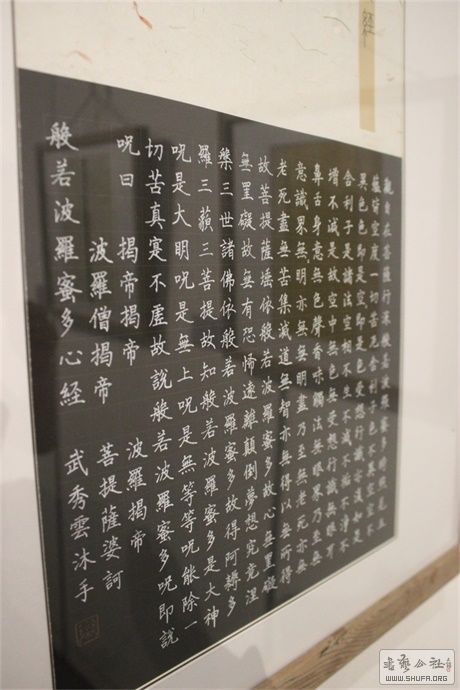 觀自在菩薩行深般若波羅蜜多時照見五
蘊皆空度一切苦厄舍利子色不異空空不
異色色即是空空即是色受想行識亦復如是
舍利子是諸法空相不生不滅不垢不淨不
增不減是故空中無色無受想行識無眼耳
鼻舌身意無色聲香味觸法無眼界乃至無
意識界無無明亦無無明盡乃至無老死亦無
老死盡無苦集滅道無智亦無得以無所得
故菩提薩埵依般若波羅蜜多故心無罣礙
無罣礙故無有恐怖遠離顛倒夢想究竟涅
槃三世諸佛依般若波羅蜜多故得阿耨多
羅三藐三菩提故知般若波羅蜜多是大神
呪是大明呪是無上呪是無等等呪能除一
切苦真實不虛故說般若波羅蜜多呪即說
呪曰 揭帝揭帝 波羅揭帝
波羅僧揭帝 菩提薩婆訶
般若波羅蜜多心経 武秀雲沐手
書藝公社
WWW.SHUFA.ORG